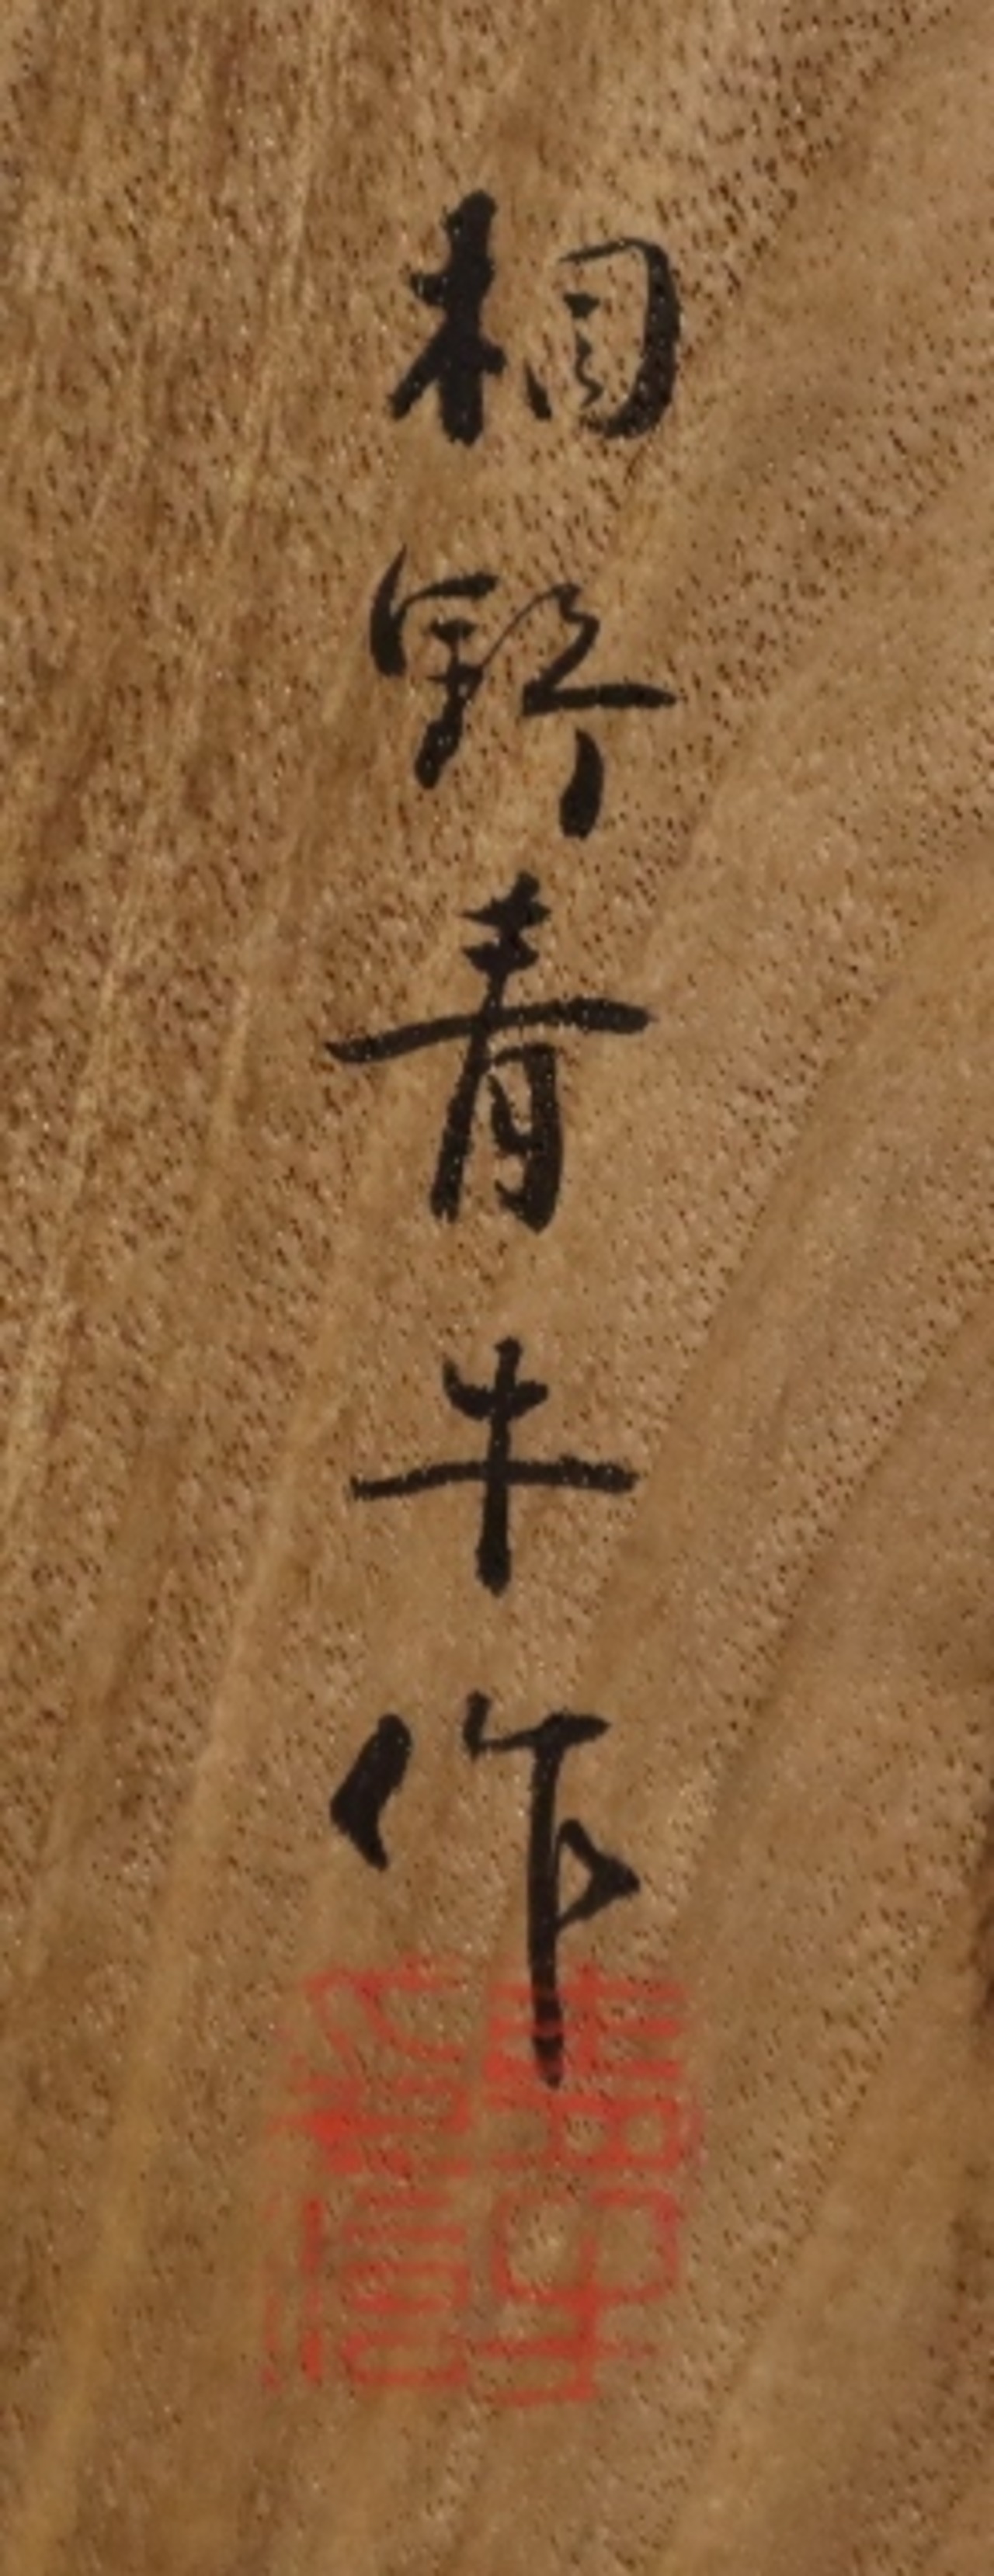 桐野青牛作